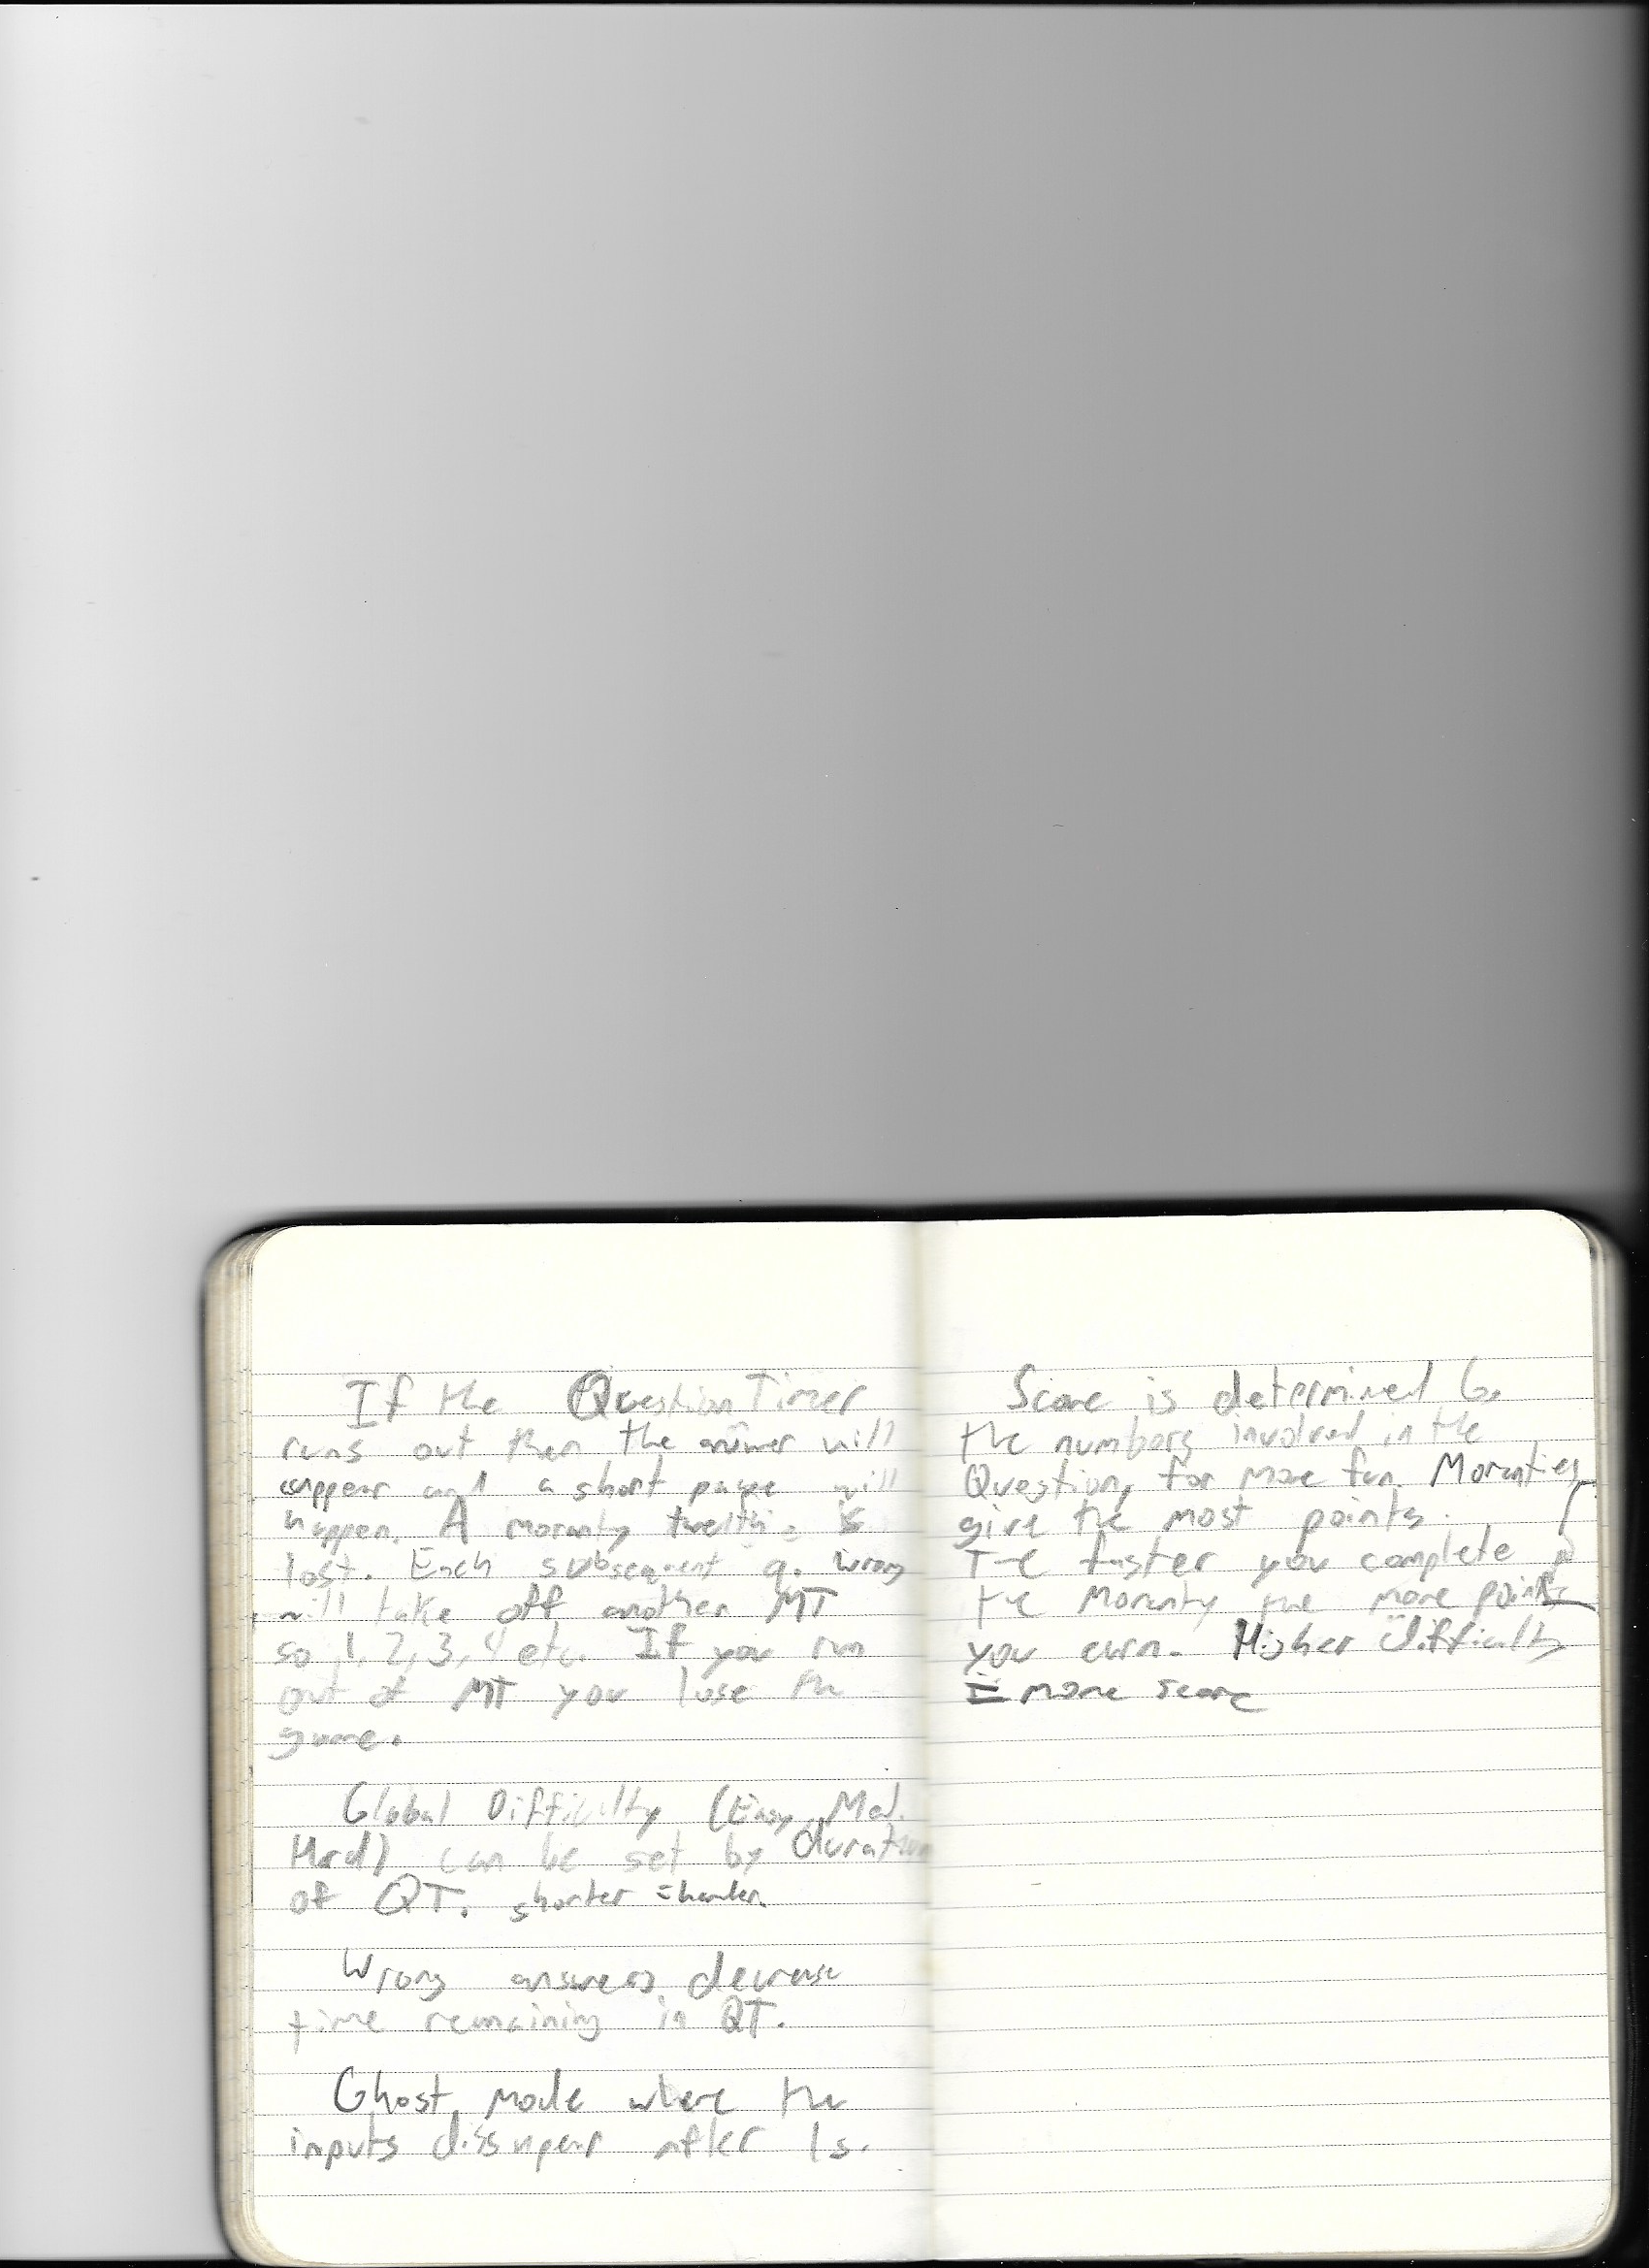 If the Question Timer
runs out then the answer will
appear and a short pause will
happen. A moranty twelth is
lost. Each subsequent q. wrong
will take off another MT
so 1, 2, 3, 4 etc. If you run
out of MT you lose the
game.
Global Difficulty (Easy, Med.
Hard) can be set by duration
of QT. shorter = harder.
Wrong answers decrease
time remaining in QT.
Ghost mode where the
inputs dissapear after 1s.
Score is determined by
the numbers involved in the
Question, for more fun. Moranties
give the most points.
The faster you complete
the Moranty the more points
you earn. Higher difficulty
= more score